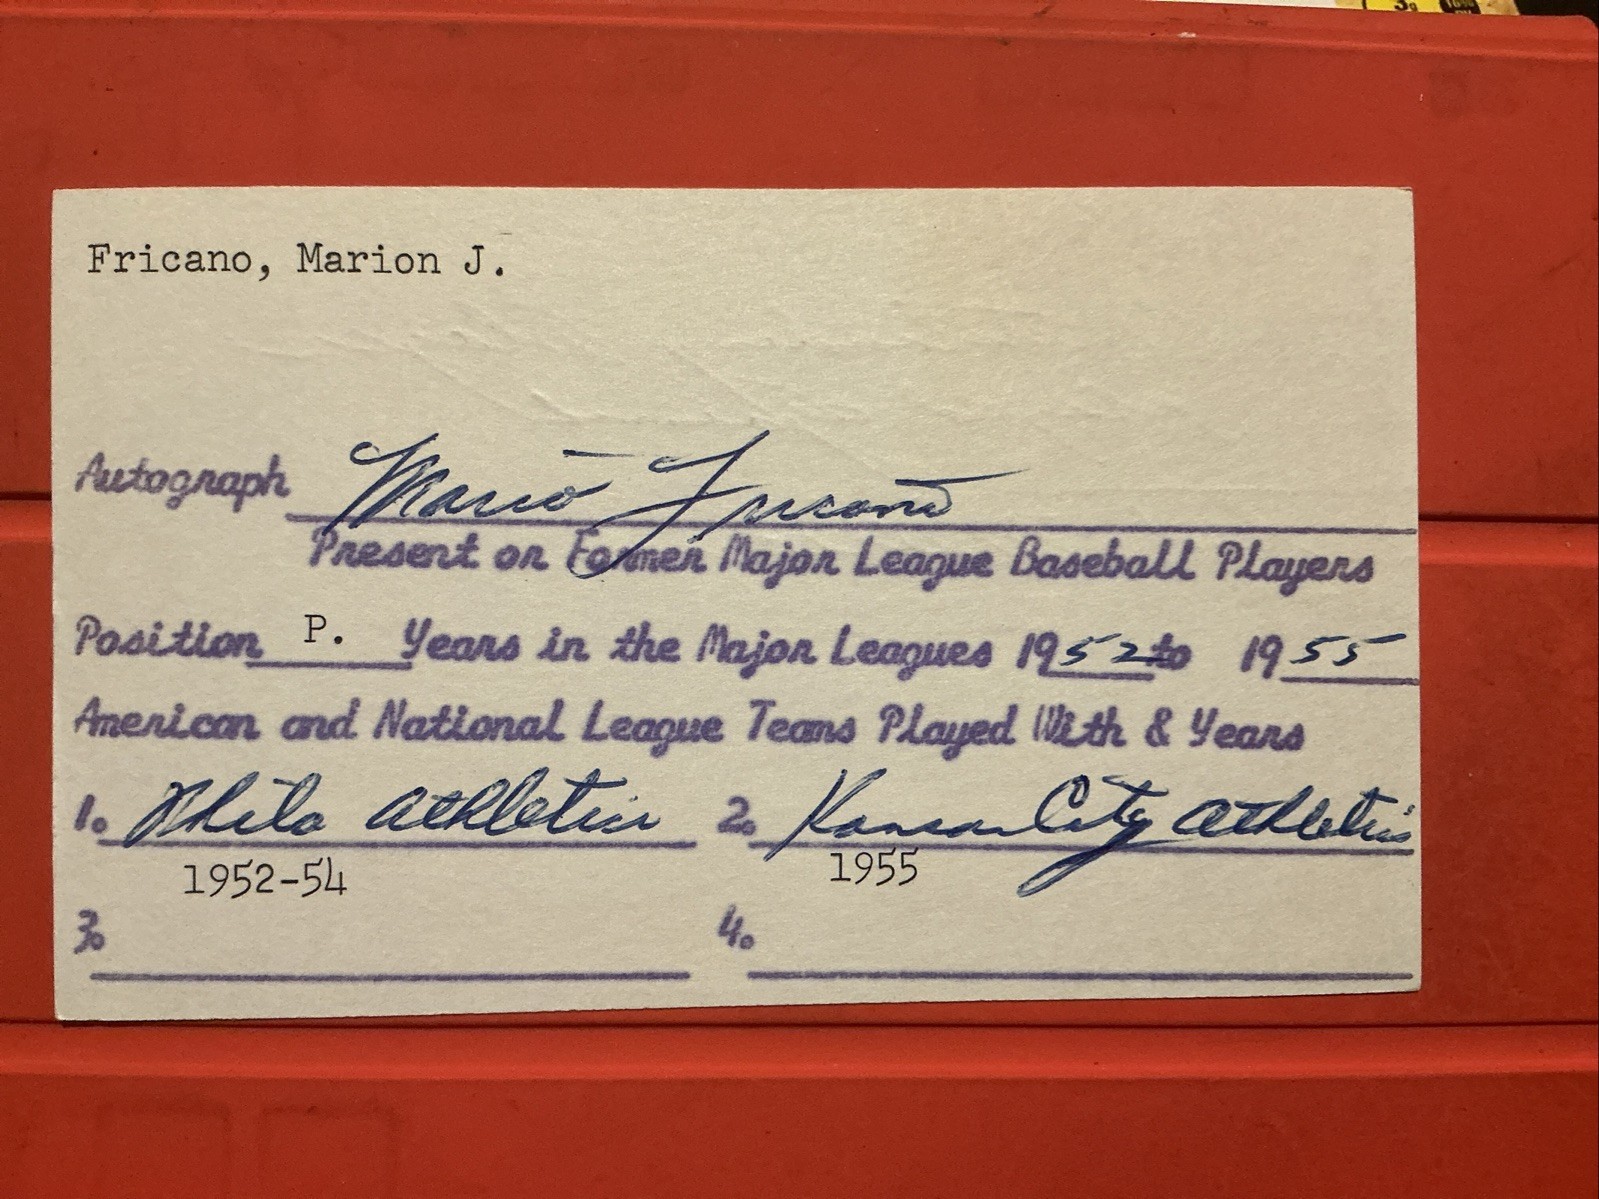 3g
10%
Fricano, Marion J.
Autograph Mario Fricano
Present or Former Major League Baseball Players
Position P. Years in the Major Leagues 1952 to 1955
American and National League Teams Played With & Years
1. Phila Athletics 2. Kansas City Athletics
1952-54 1955
3. 4.